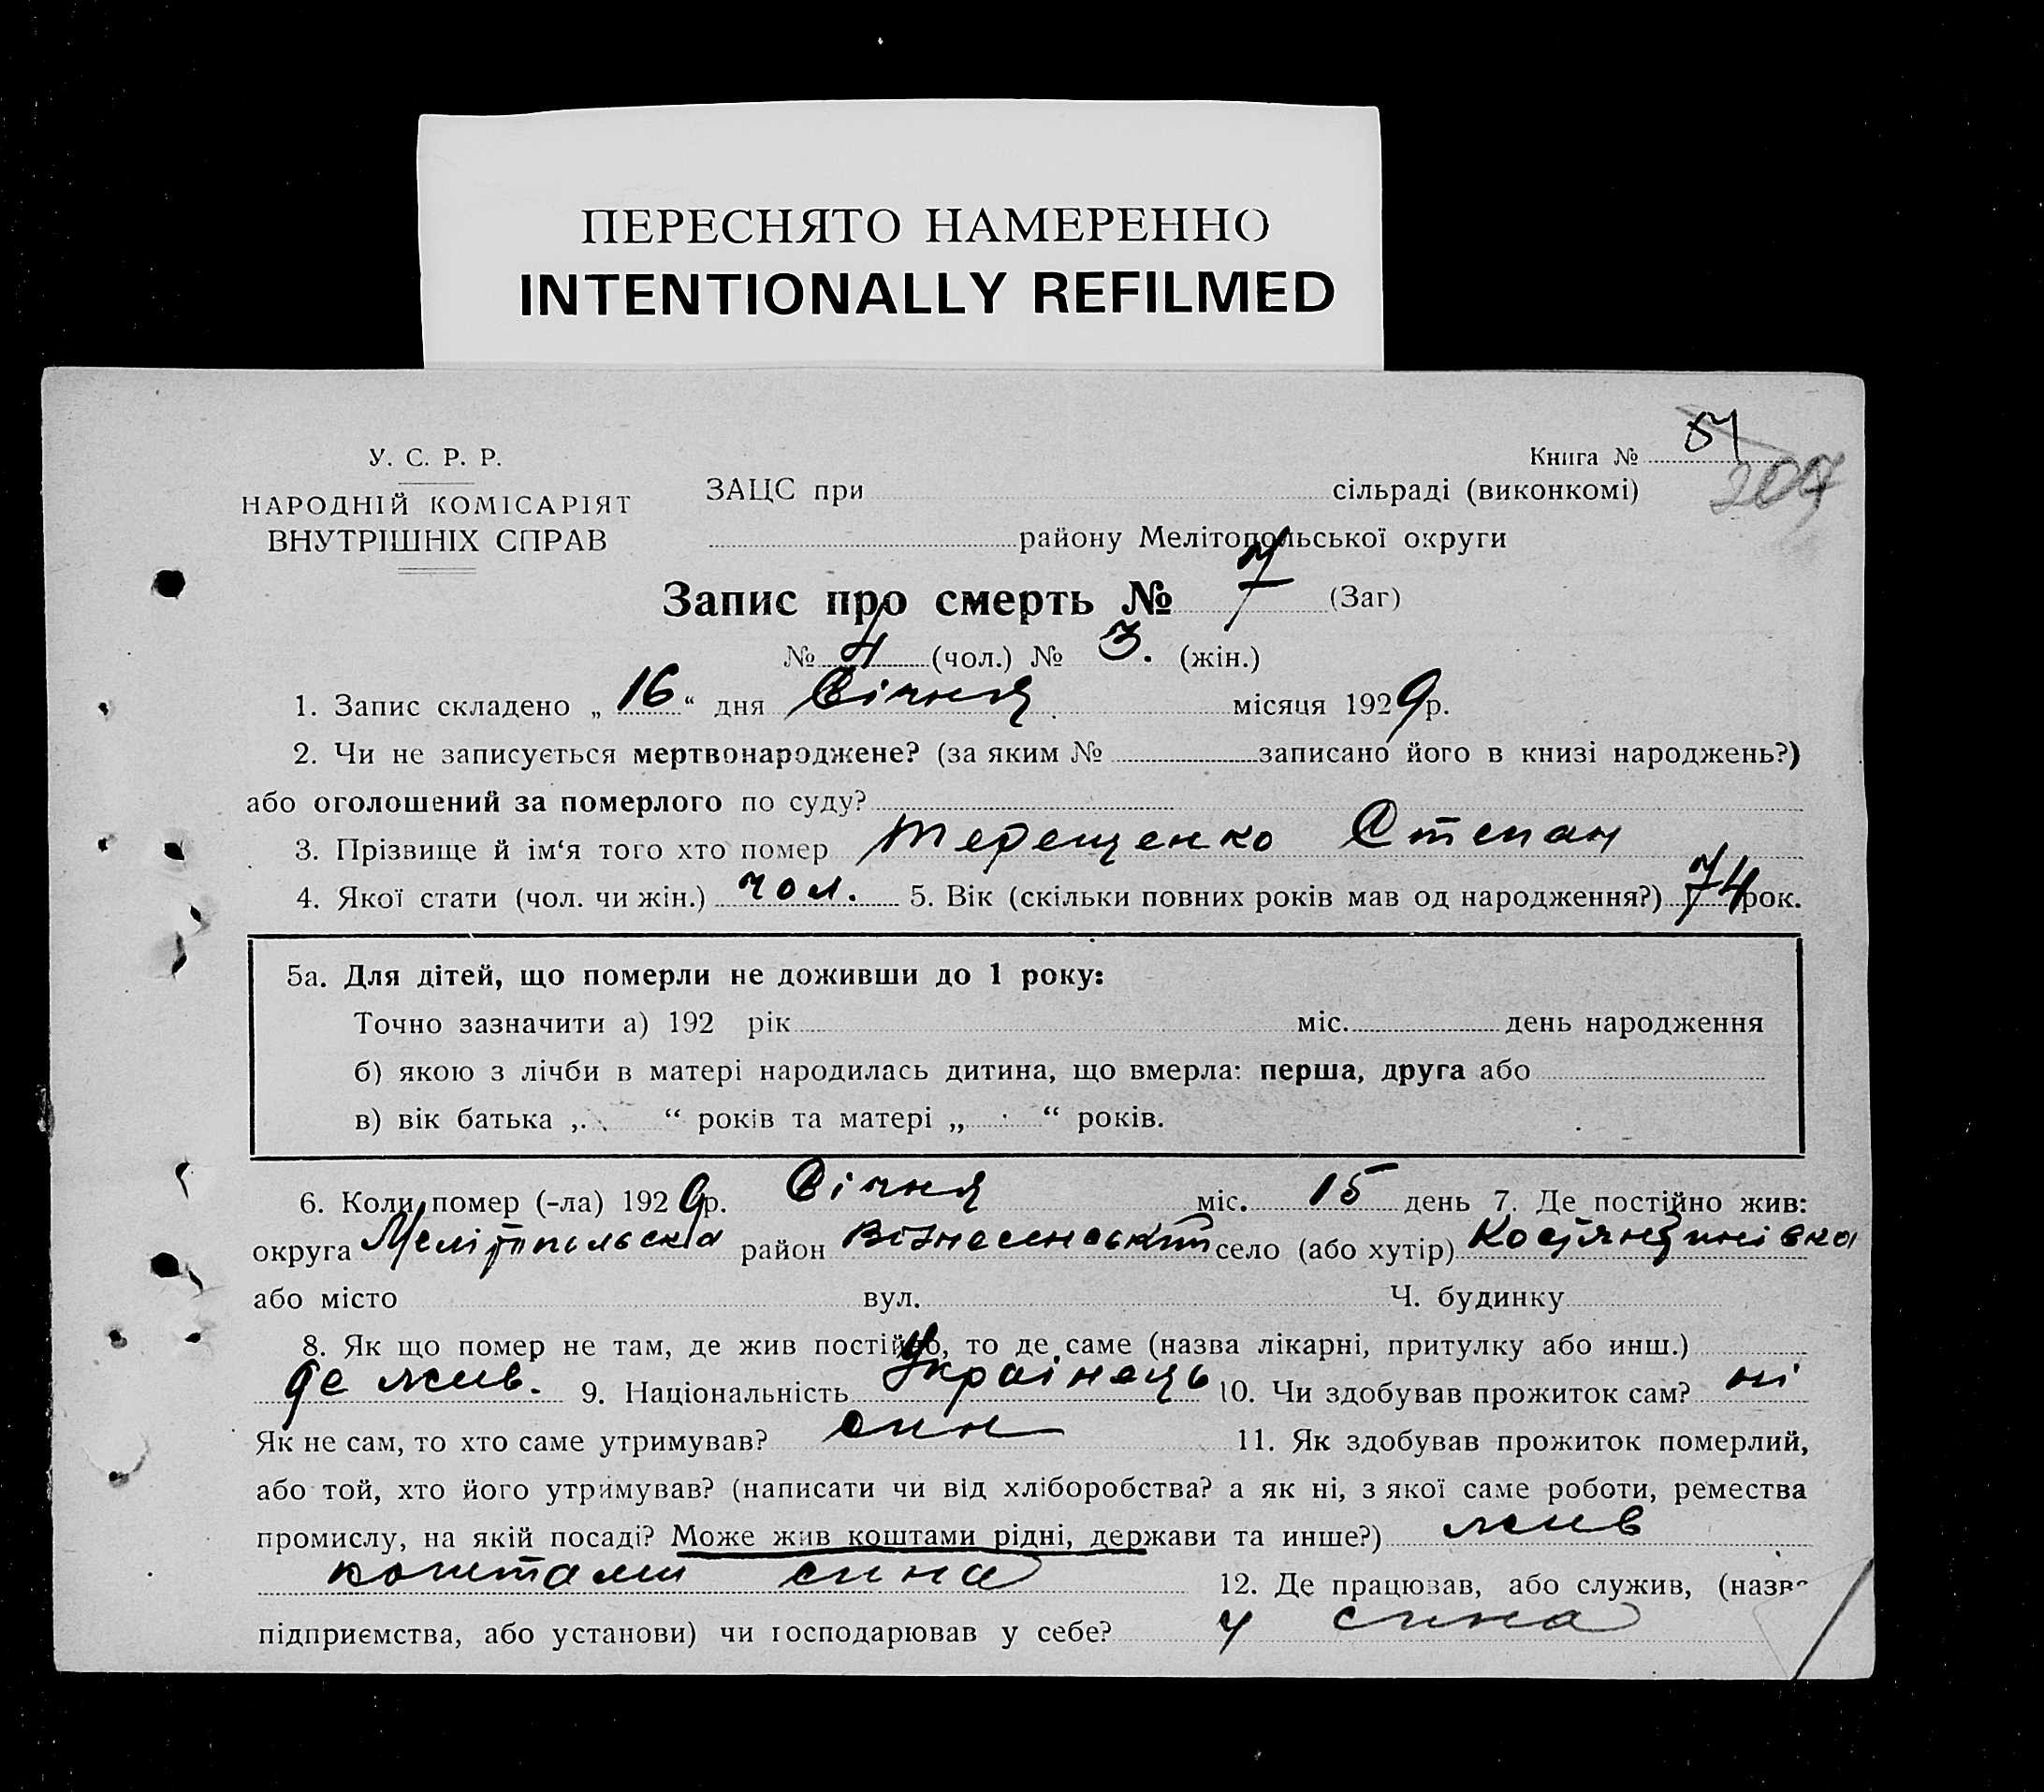 ПЕРЕСНЯТО НАМЕРЕННО
INTENTIONALLY REFILMED
У. С. Р. Р.
НАРОДНІЙ КОМІСАРІЯТ
ВНУТРІШНІХ СПРАВ
Книга №
207
ЗАЦС при сільраді (виконкомі)
району Мелітопольської округи
Запис про смерть № 7 (Заг)
№ 4 (чол.) № 3. (жін.)
1. Запис складено „16“ дня Січня місяця 1929р.
2. Чи не записується мертвонароджене? (за яким № записано його в книзі народжень?)
або оголошений за померлого по суду?
3. Прізвище й ім‘я того хто помер Терещенко Степан
4. Якої стати (чол. чи жін.) чол. 5. Вік (скільки повних років мав од народження?) 74 рок.
5а. Для дітей, що померли не доживши до 1 року:
Точно зазначити а) 192 рік міс. день народження
б) якою з лічби в матері народилась дитина, що вмерла: перша, друга або
в) вік батька „ “ років та матері „ “ років.
6. Коли помер (-ла) 1929р. Січня міс. 15 день 7. Де постійно жив:
округа Мелітопільска район Візнесенський село (або хутір) Костянтинівка
або місто вул. Ч. будинку
8. Як що помер не там, де жив постійно, то де саме (назва лікарні, притулку або инш.)
де жив. 9. Національність Украінець 10. Чи здобував прожиток сам? ні
Як не сам, то хто саме утримував? син 11. Як здобував прожиток померлий,
або той, хто його утримував? (написати чи від хліборобства? а як ні, з якої саме роботи, ремества
промислу, на якій посаді? Може жив коштами рідні, держави та инше?) жив
коштами сина 12. Де працював, або служив, (назва
підприємства, або установи) чи господарював у себе? у сина